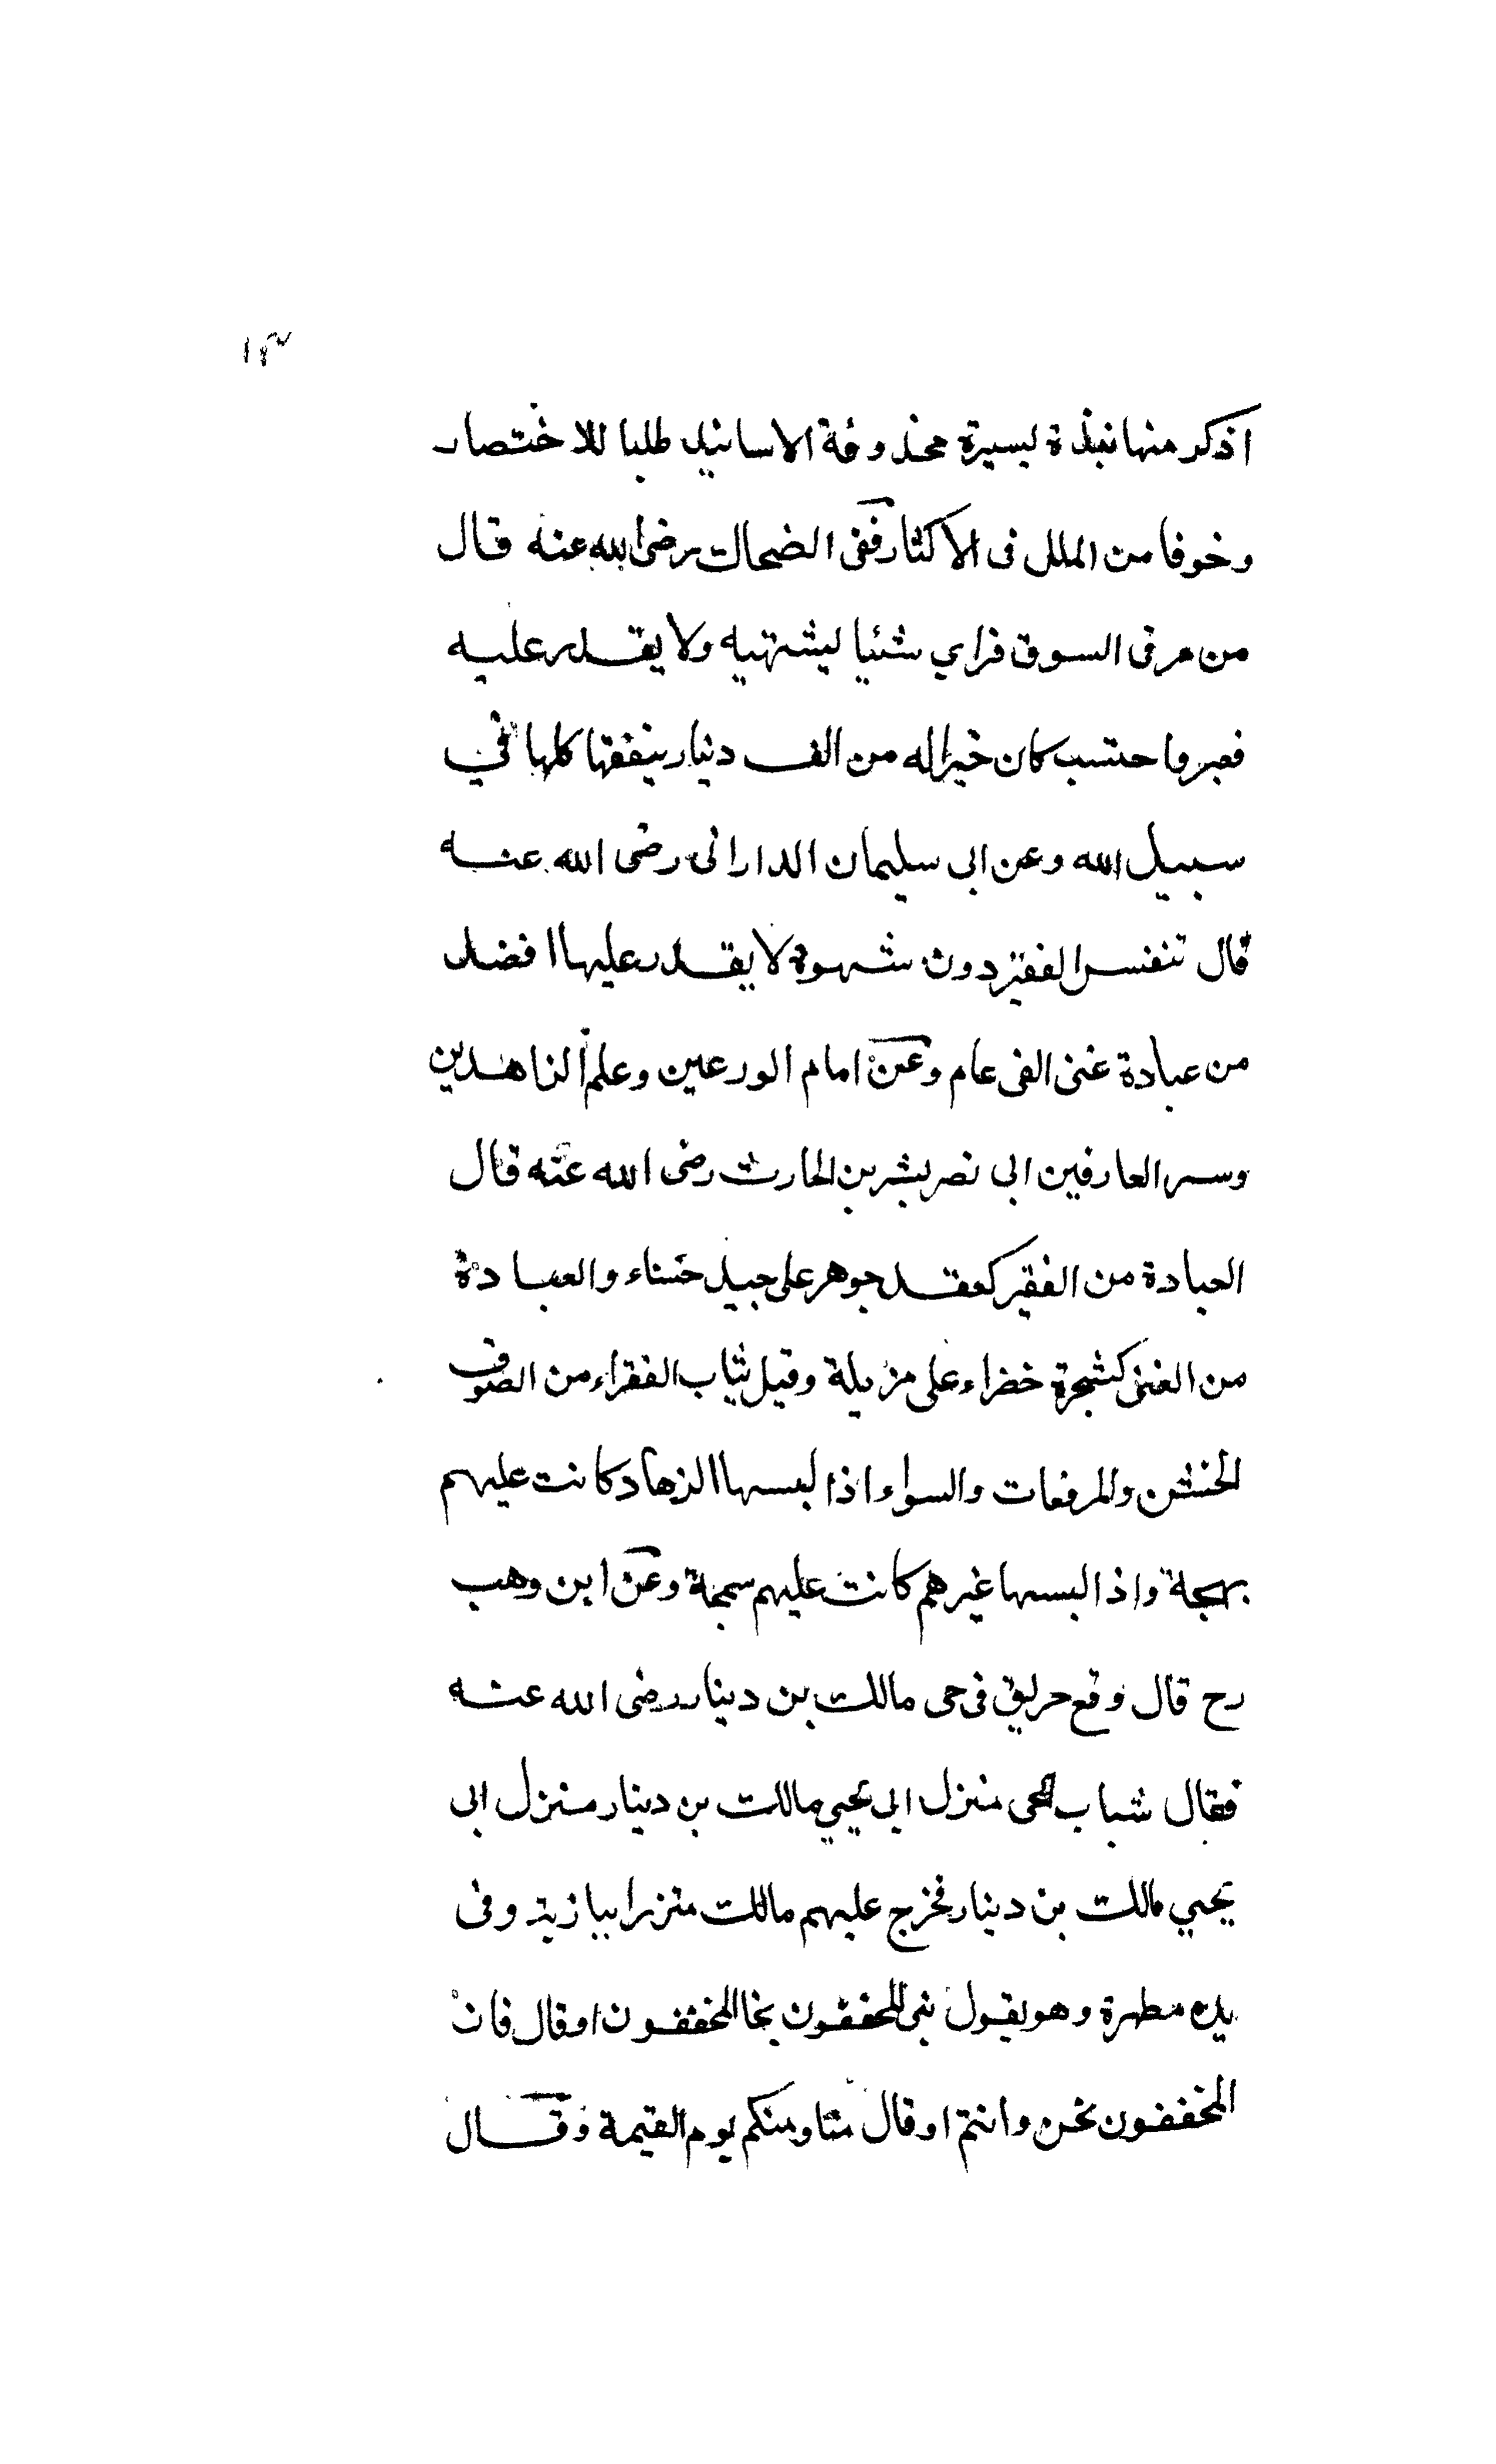 ١٣
اذكر منها نبذة يسيرة محذوفة الاسانيد طلبا للاختصار
وخوفا من الملل فى الاكثار ففى الضحاك رضى الله عنه قال
من مر فى السوق فراي شئيا يشتهيه ولا يقدر عليه
فصبر واحتسب كان خيرا له من الف دينار ينفقها كلها في
سبيل الله وعن ابى سليمان الدارانى رضى الله عنه
قال تنفس الفقير دون شهوة لا يقدر عليها افضل
من عبادة غنى الفى عام وعن امام الورعين وعلم الزاهدين
وسر العارفين ابى نصر بشر بن الحارث رضى الله عنه قال
العبادة من الفقير كعقد جوهر على جيد حسناء والعبادة
من الغنى كشجرة خضراء على مزبلة وقيل ثياب الفقراء من الصوف
الخشن والمرقعات والسواء اذا لبسها الزهاد كانت عليهم
بهجة واذا لبسها غيرهم كانت عليهم سمجة وعن ابن وهب
رح قال وقع حريق فى حى مالك بن دينار رضى الله عنه
فقال شباب الحى منزل ابى يحيي مالك بن دينار منزل ابى
يحيي مالك بن دينار فخرج عليهم مالك متزرا ببازية وفى
يده مطهرة وهو يقول نجى المخففون نجا المخففون او قال فان
المخففون نحن وانتم او قال منا ومنكم يوم القيمة وقال